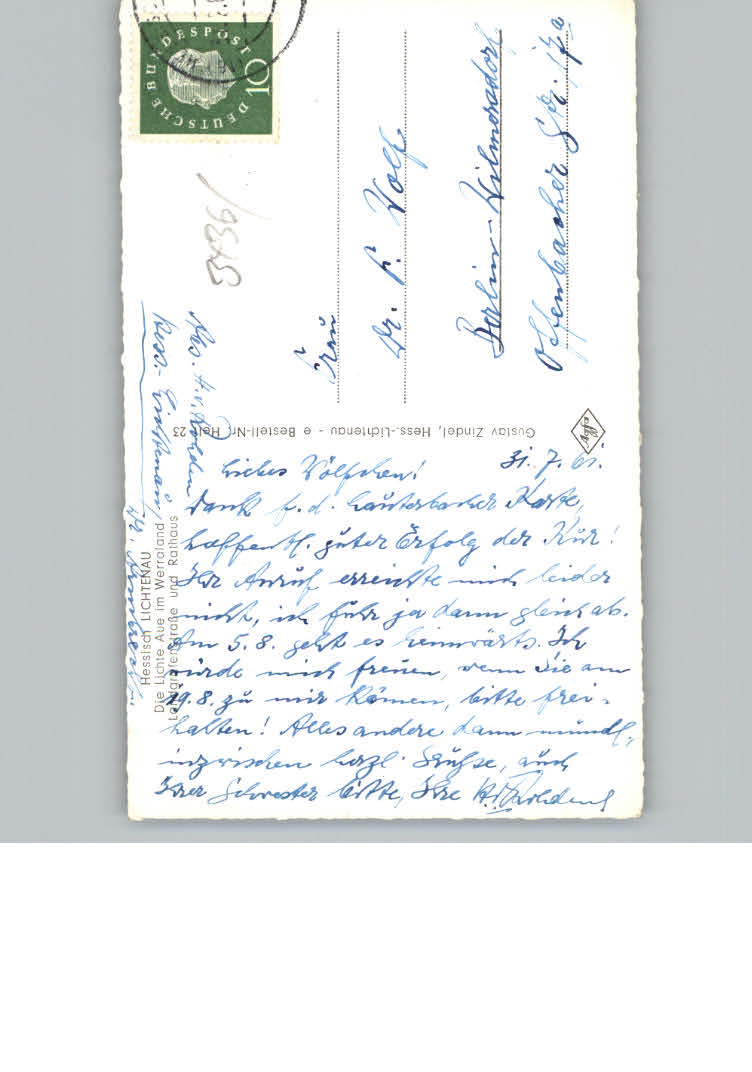 DEUTSCHE BUNDESPOST
10
5436/
Abs. H. v. Rohden
Hess.-Lichtenau
Hessisch LICHTENAU
Die Lichte Aue im Werraland
Landgrafenstraße und Rathaus
Gustav Zindel, Hess.-Lichtenau - e Bestell-Nr. Helt 23
Frau
Dr. P. Wolf
Berlin-Wilmersdorf
Offenbacher Str. 17a
31. 7. 61.
Liebes Wölfchen!
Dank f. d. Lauterbacher Karte,
hoffentl. guter Erfolg der Kur!
Ihr Anruf erreichte mich leider
nicht, ich fuhr ja dann gleich ab.
Am 5.8. geht es heimwärts. Ich
würde mich freuen, wenn Sie am
19.8. zu mir kämen, bitte frei-
halten! Alles andere dann mündl.,
inzwischen herzl. Grüße, auch
Ihrer Schwester bitte, Ihre H. v. Rohden